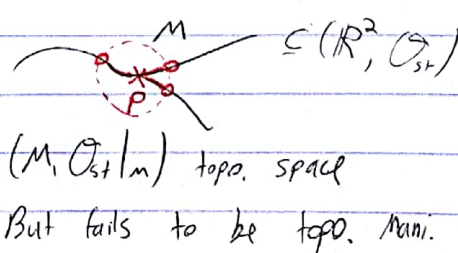 M ⊆ (ℝ², 𝒪st)
p
(M, 𝒪st|M) topo. space
But fails to be topo. Mani.